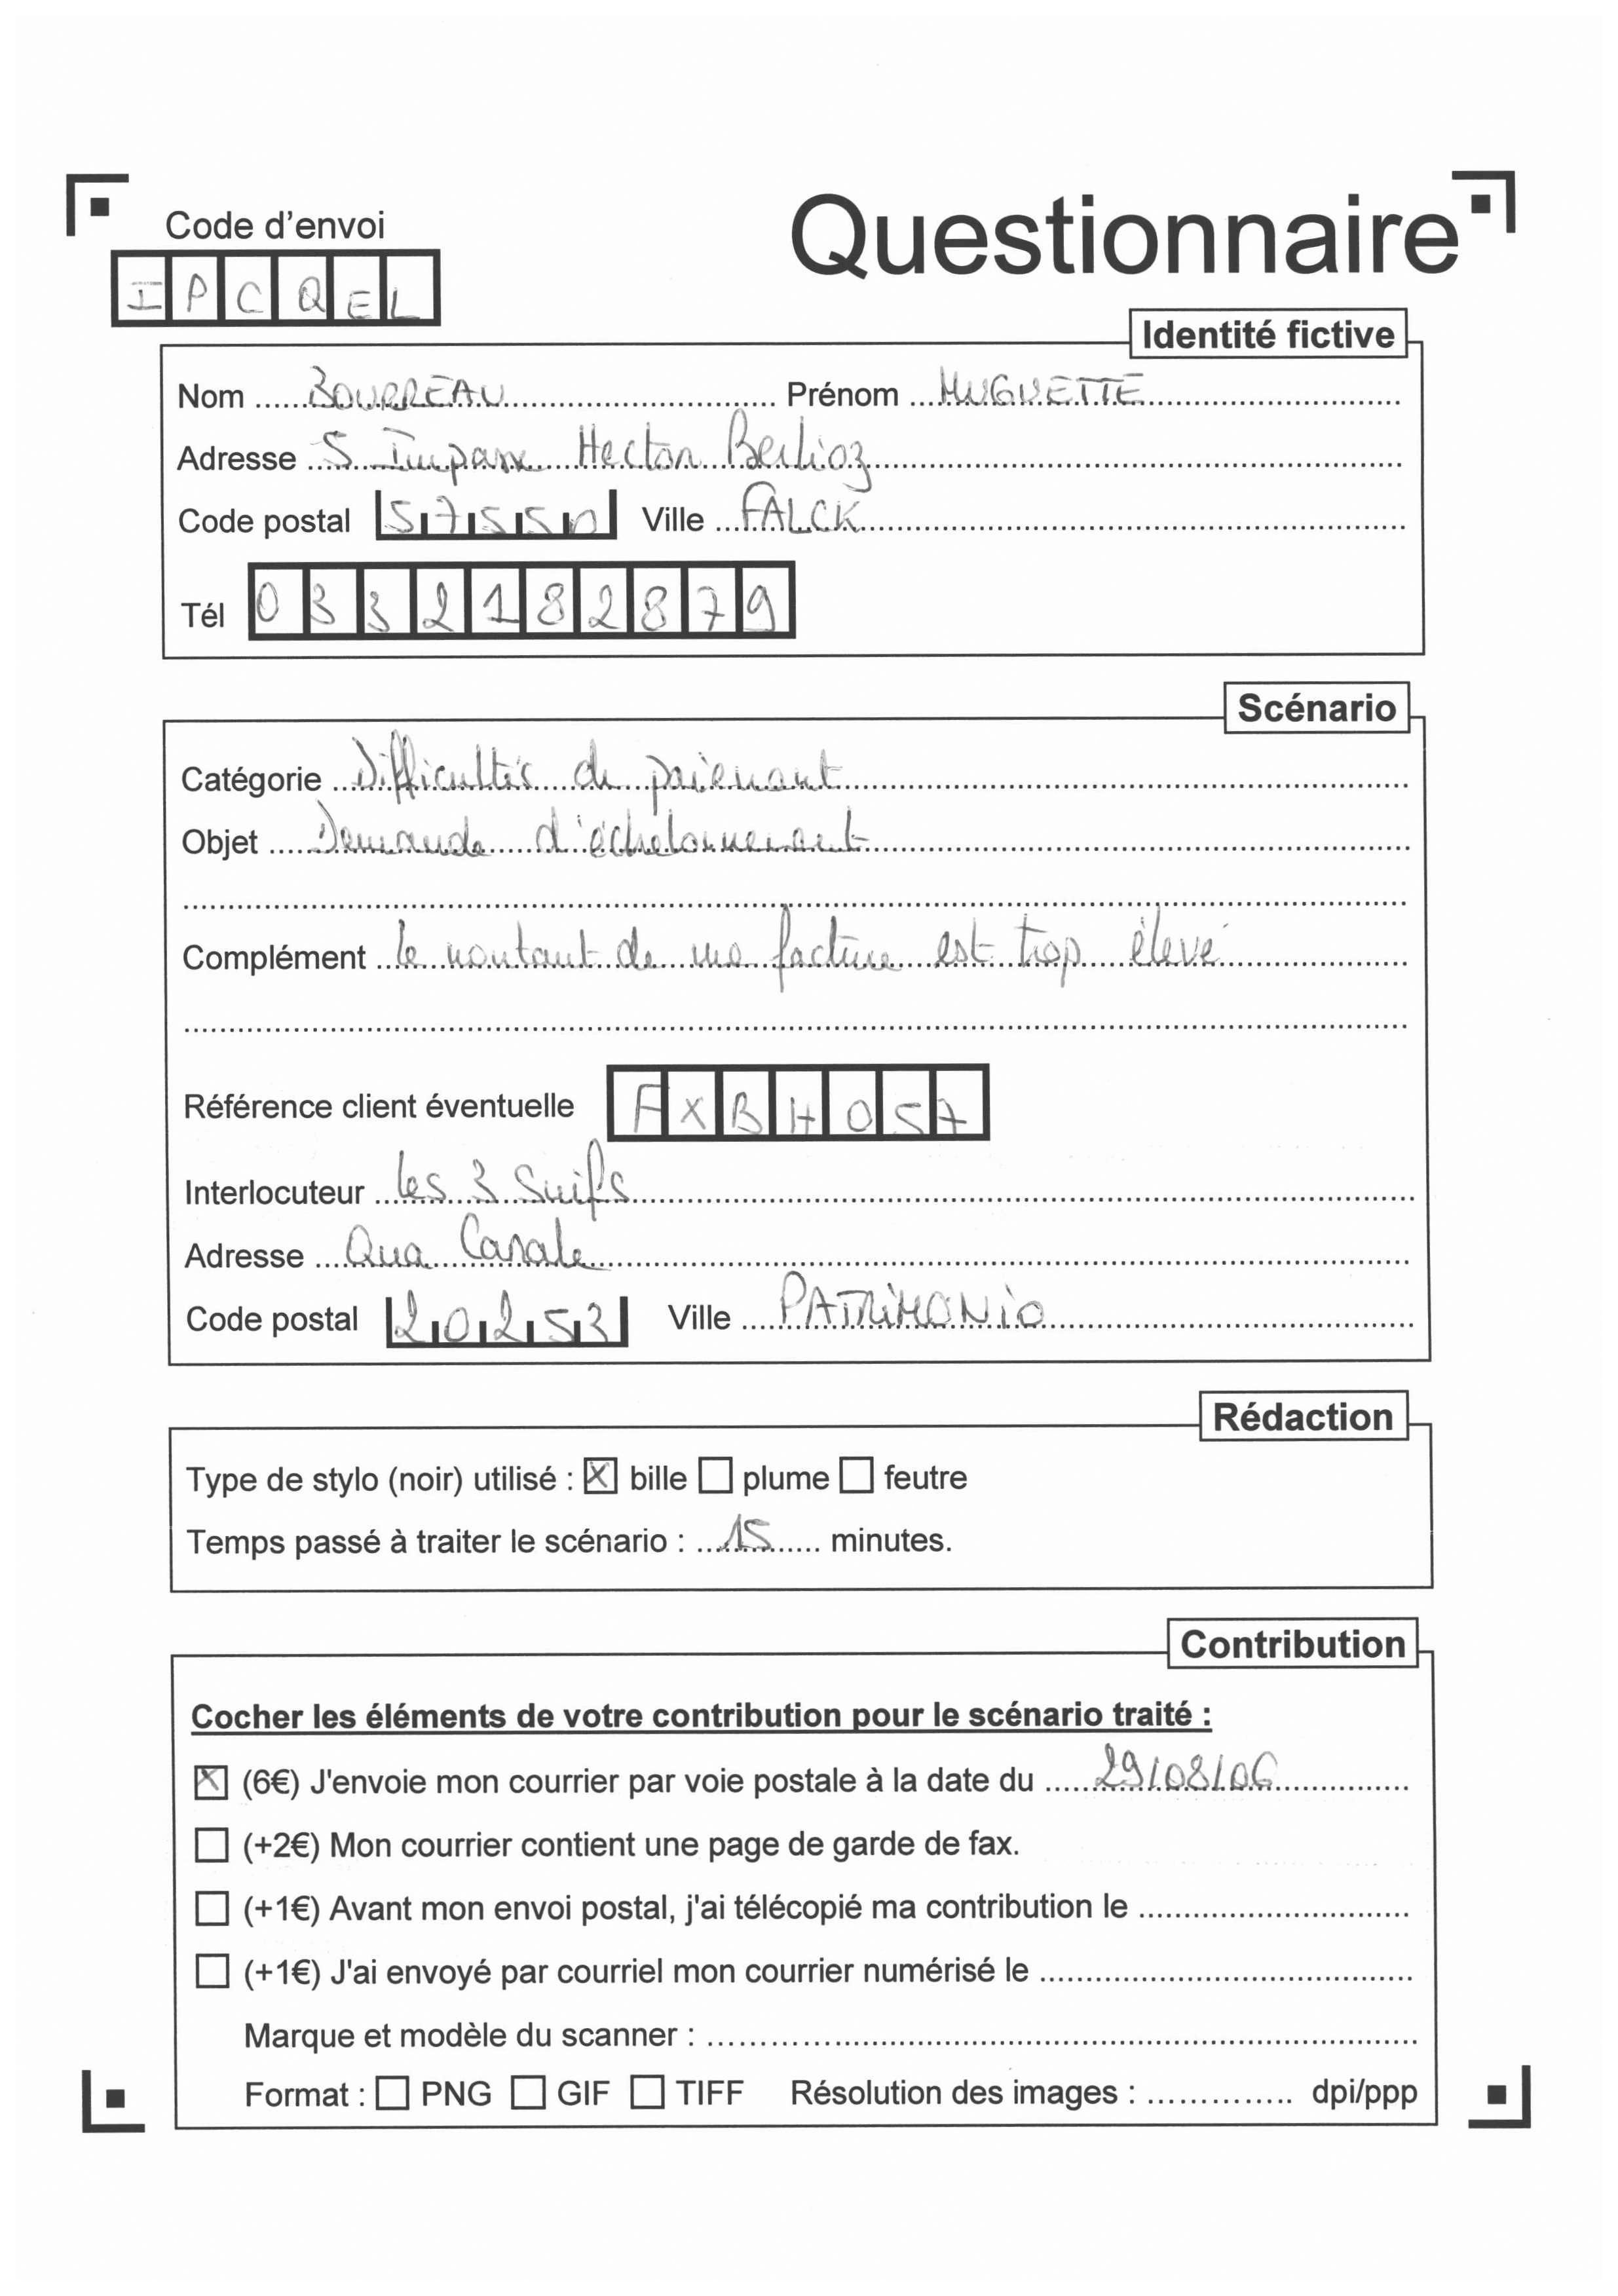 Code d'envoi
Questionnaire
IPCQEL
Identité fictive
Nom ..... BOURREAU ..... Prénom ... MUGUETTE .....
Adresse ... 5 Impasse Hector Berlioz .....
Code postal 57550 Ville ... FALCK .....
Tél 0332182879
Scénario
Catégorie ... Difficultés de paiement .....
Objet ..... Demande d'échelonnement .....
Complément ... Le montant de ma facture est trop élevé .....
Référence client éventuelle FXBH057
Interlocuteur ... Les 3 Suifs .....
Adresse ... Qua Casale .....
Code postal 20253 Ville ... PATRIMONIO .....
Rédaction
Type de stylo (noir) utilisé : ☒ bille ☐ plume ☐ feutre
Temps passé à traiter le scénario : ... 15 ... minutes.
Contribution
Cocher les éléments de votre contribution pour le scénario traité :
☒ (6€) J'envoie mon courrier par voie postale à la date du ..... 29/08/06 .....
☐ (+2€) Mon courrier contient une page de garde de fax.
☐ (+1€) Avant mon envoi postal, j'ai télécopié ma contribution le .....
☐ (+1€) J'ai envoyé par courriel mon courrier numérisé le .....
Marque et modèle du scanner : .....
Format : ☐ PNG ☐ GIF ☐ TIFF Résolution des images : ..... dpi/ppp